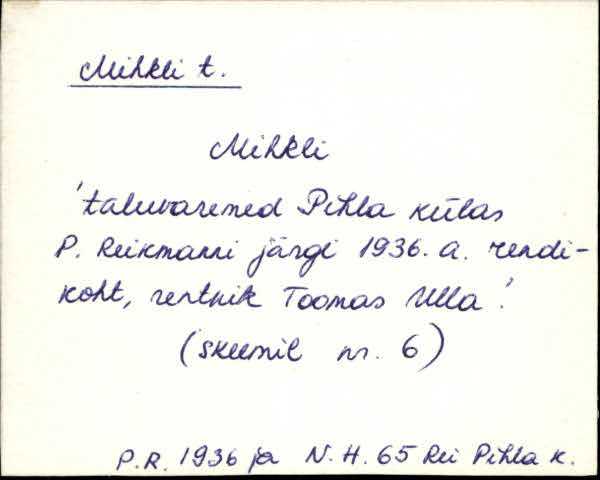 Mihkli t.
Mihkli
'taluvaremed Pihla külas
P. Reikmanni järgi 1936. a. rendi-
koht, rentnik Toomas Ulla'.
(skeemil nr. 6)
P.R. 1936 ja N.H. 65 Rei Pihla k.